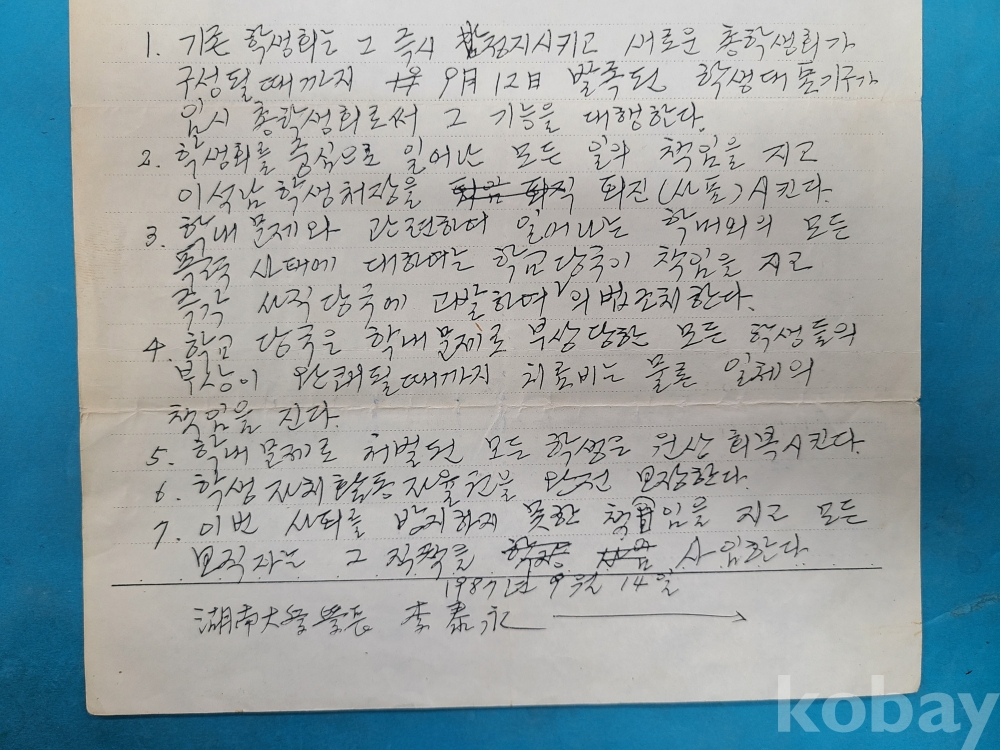 1. 기존 학생회는 그 즉시 정지시키고 새로운 총학생회가
구성될때까지 9月 12日 발족된 학생대표기구가
임시 총학생회로써 그 기능을 대행한다.
2. 학생회를 중심으로 일어난 모든 일의 책임을 지고
이석남 학생처장을 퇴진(사표)시킨다.
3. 학내문제와 관련하여 일어나는 학내외의 모든
폭력 사태에 대하여는 학교당국이 책임을 지고
즉각 사직당국에 고발하여 의법조치한다.
4. 학교 당국은 학내문제로 부상당한 모든 학생들의
부상이 완쾌될때까지 치료비는 물론 일체의
책임을 진다.
5. 학내문제로 처벌된 모든 학생은 원상 회복시킨다.
6. 학생 자치활동 자율권을 완전 보장한다.
7. 이번 사퇴를 방지하지 못한 책임을 지고 모든
보직자는 그 직책을 사임한다
1987년 9월 14일
湖南大学學長 李泰永
kobay